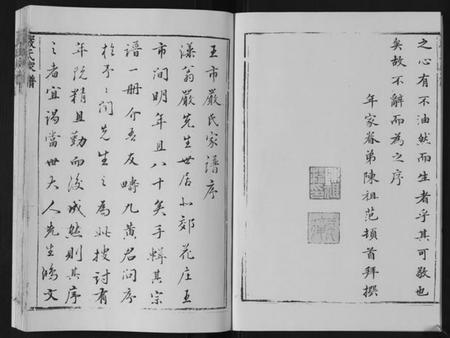 之心有不油然而生者乎其可敬也
矣故不辭而為之序
年家眷弟陳祖范頓首拜撰
王市嚴氏家譜序
漾翁嚴先生世居小郊花庄王
市間明年且八十矣手輯其宗
譜一冊介吾友疇九黄君問序
於予予問先生之為此搜討有
年既精且勤而後成然則其序
之者宜謁當世大人先生鴻文
嚴氏家譜